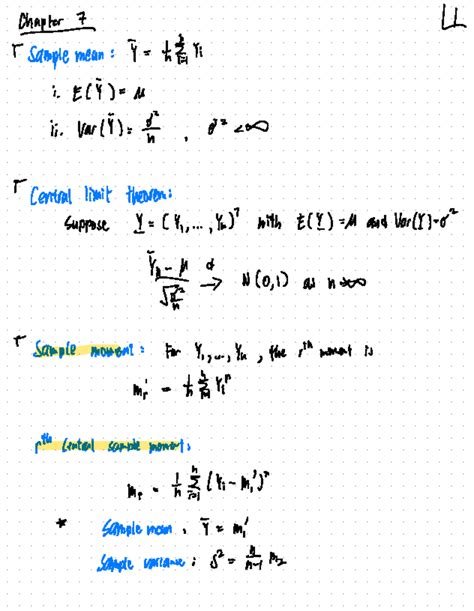 Chapter 7
Sample mean : Ȳ = 1/n Σ_{i=1}^{n} Y_i
i. E(Ȳ) = μ
ii. Var(Ȳ) = σ²/n , σ² < ∞
Central limit theorem:
Suppose Y = (Y₁, ..., Yₙ)ᵀ with E(Y) = μ and Var(Y) = σ²
(Ȳₙ − μ)/√(σ²/n) →ᵈ N(0,1) as n→∞
Sample moment : For Y₁, ..., Yₙ , the rᵗʰ moment is
m_r' = 1/n Σ_{i=1}^{n} Y_i^r
rᵗʰ central sample moment:
m_r = 1/n Σ_{i=1}^{n} (Y_i − m₁')^r
* Sample mean : Ȳ = m₁'
Sample variance : S² = n/(n−1) m₂